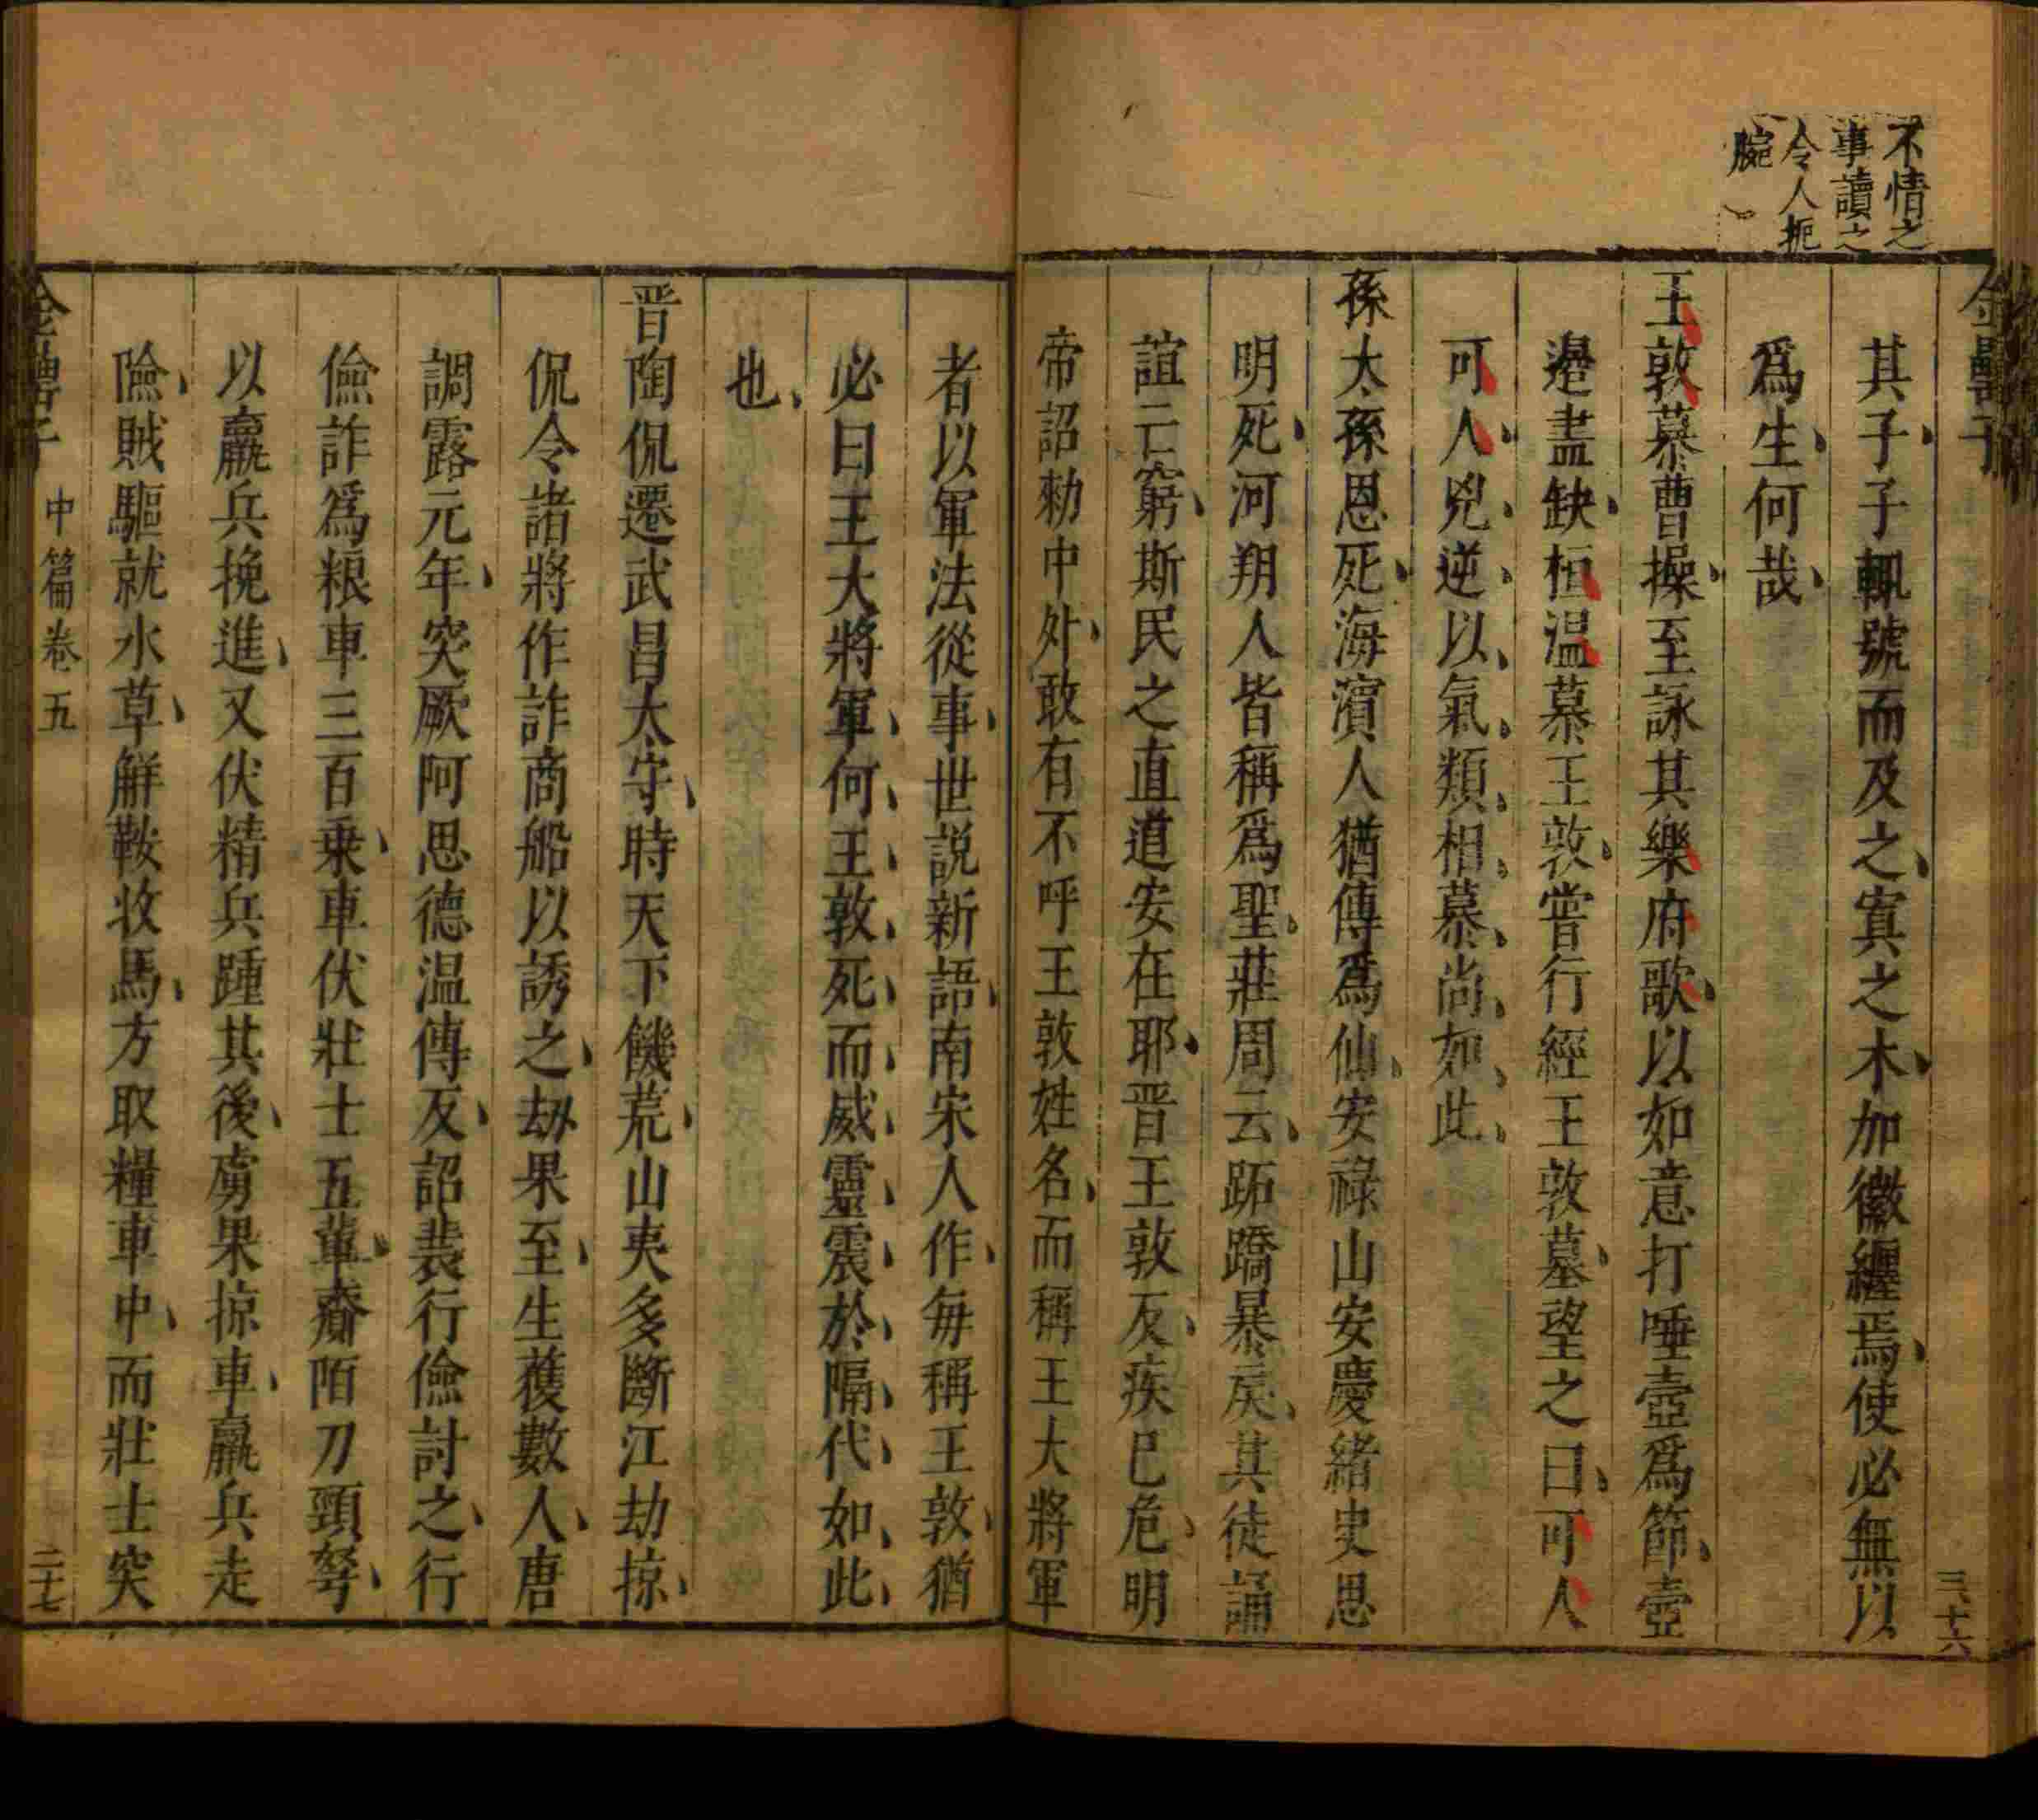 不情之
事讀之
令人扼
腕
金罍子
三十六
其子子輒號而及之寘之木加徽纆焉使必無以
爲生何哉
王敦慕曹操至詠其樂府歌以如意打唾壺爲節壺
邊盡缺桓温慕王敦嘗行經王敦墓望之曰可人
可人兇逆以氣類相慕尚如此
孫太孫恩死海濱人猶傳爲仙安祿山安慶緒史思
明死河朔人皆稱爲聖莊周云跖蹻暴戾其徒誦
誼亡窮斯民之直道安在耶晋王敦反疾已危明
帝詔勑中外敢有不呼王敦姓名而稱王大將軍
者以軍法從事世説新語南宋人作每稱王敦猶
必曰王大將軍何王敦死而威靈震於隔代如此
也
晋陶侃遷武昌太守時天下饑荒山夷多斷江劫掠
侃令諸將作詐商船以誘之劫果至生獲數人唐
調露元年突厥阿思德温傳反詔裴行儉討之行
儉詐爲粮車三百乗車伏壯士五軰齎陌刀頸弩
以羸兵挽進又伏精兵踵其後虜果掠車羸兵走
險賊驅就水草解鞍牧馬方取糧車中而壯士突
金罍子
中篇卷五
二十七